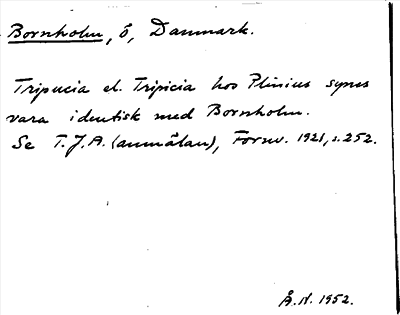 Bornholm, ö, Danmark.
Tripucia el. Tripicia hos Plinius synes
vara identisk med Bornholm.
Se T.J.A. (anmälan), Fornv. 1921, s. 252.
Å.N. 1952.